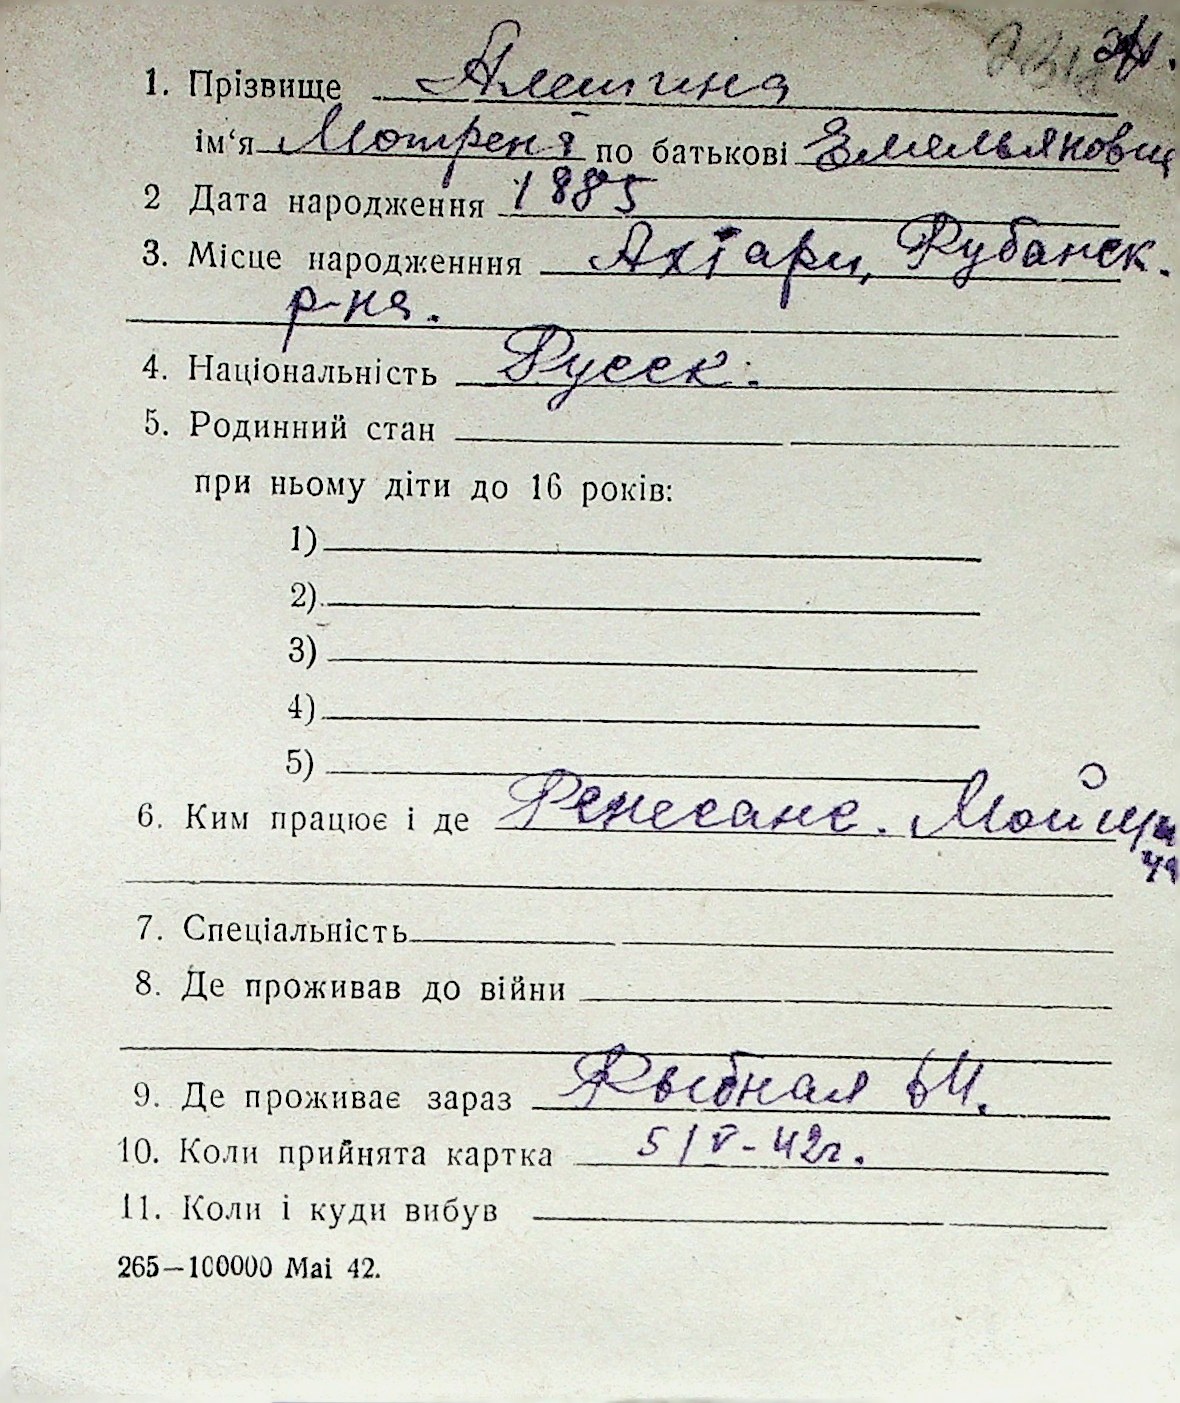 1. Прізвище Алешина
ім‘я Мотрена по батькові Емельяновна
2 Дата народження 1885
3. Місце народженння Ахтари, Кубанск.
р-на.
4. Національність Русск.
5. Родинний стан
при ньому діти до 16 років:
1)
2)
3)
4)
5)
6. Ким працює і де Ренесанс.
7. Спеціальність
8. Де проживав до війни
9. Де проживає зараз Рыбная 64.
10. Коли прийнята картка 5/V-42г.
11. Коли і куди вибув
265—100000 Mai 42.